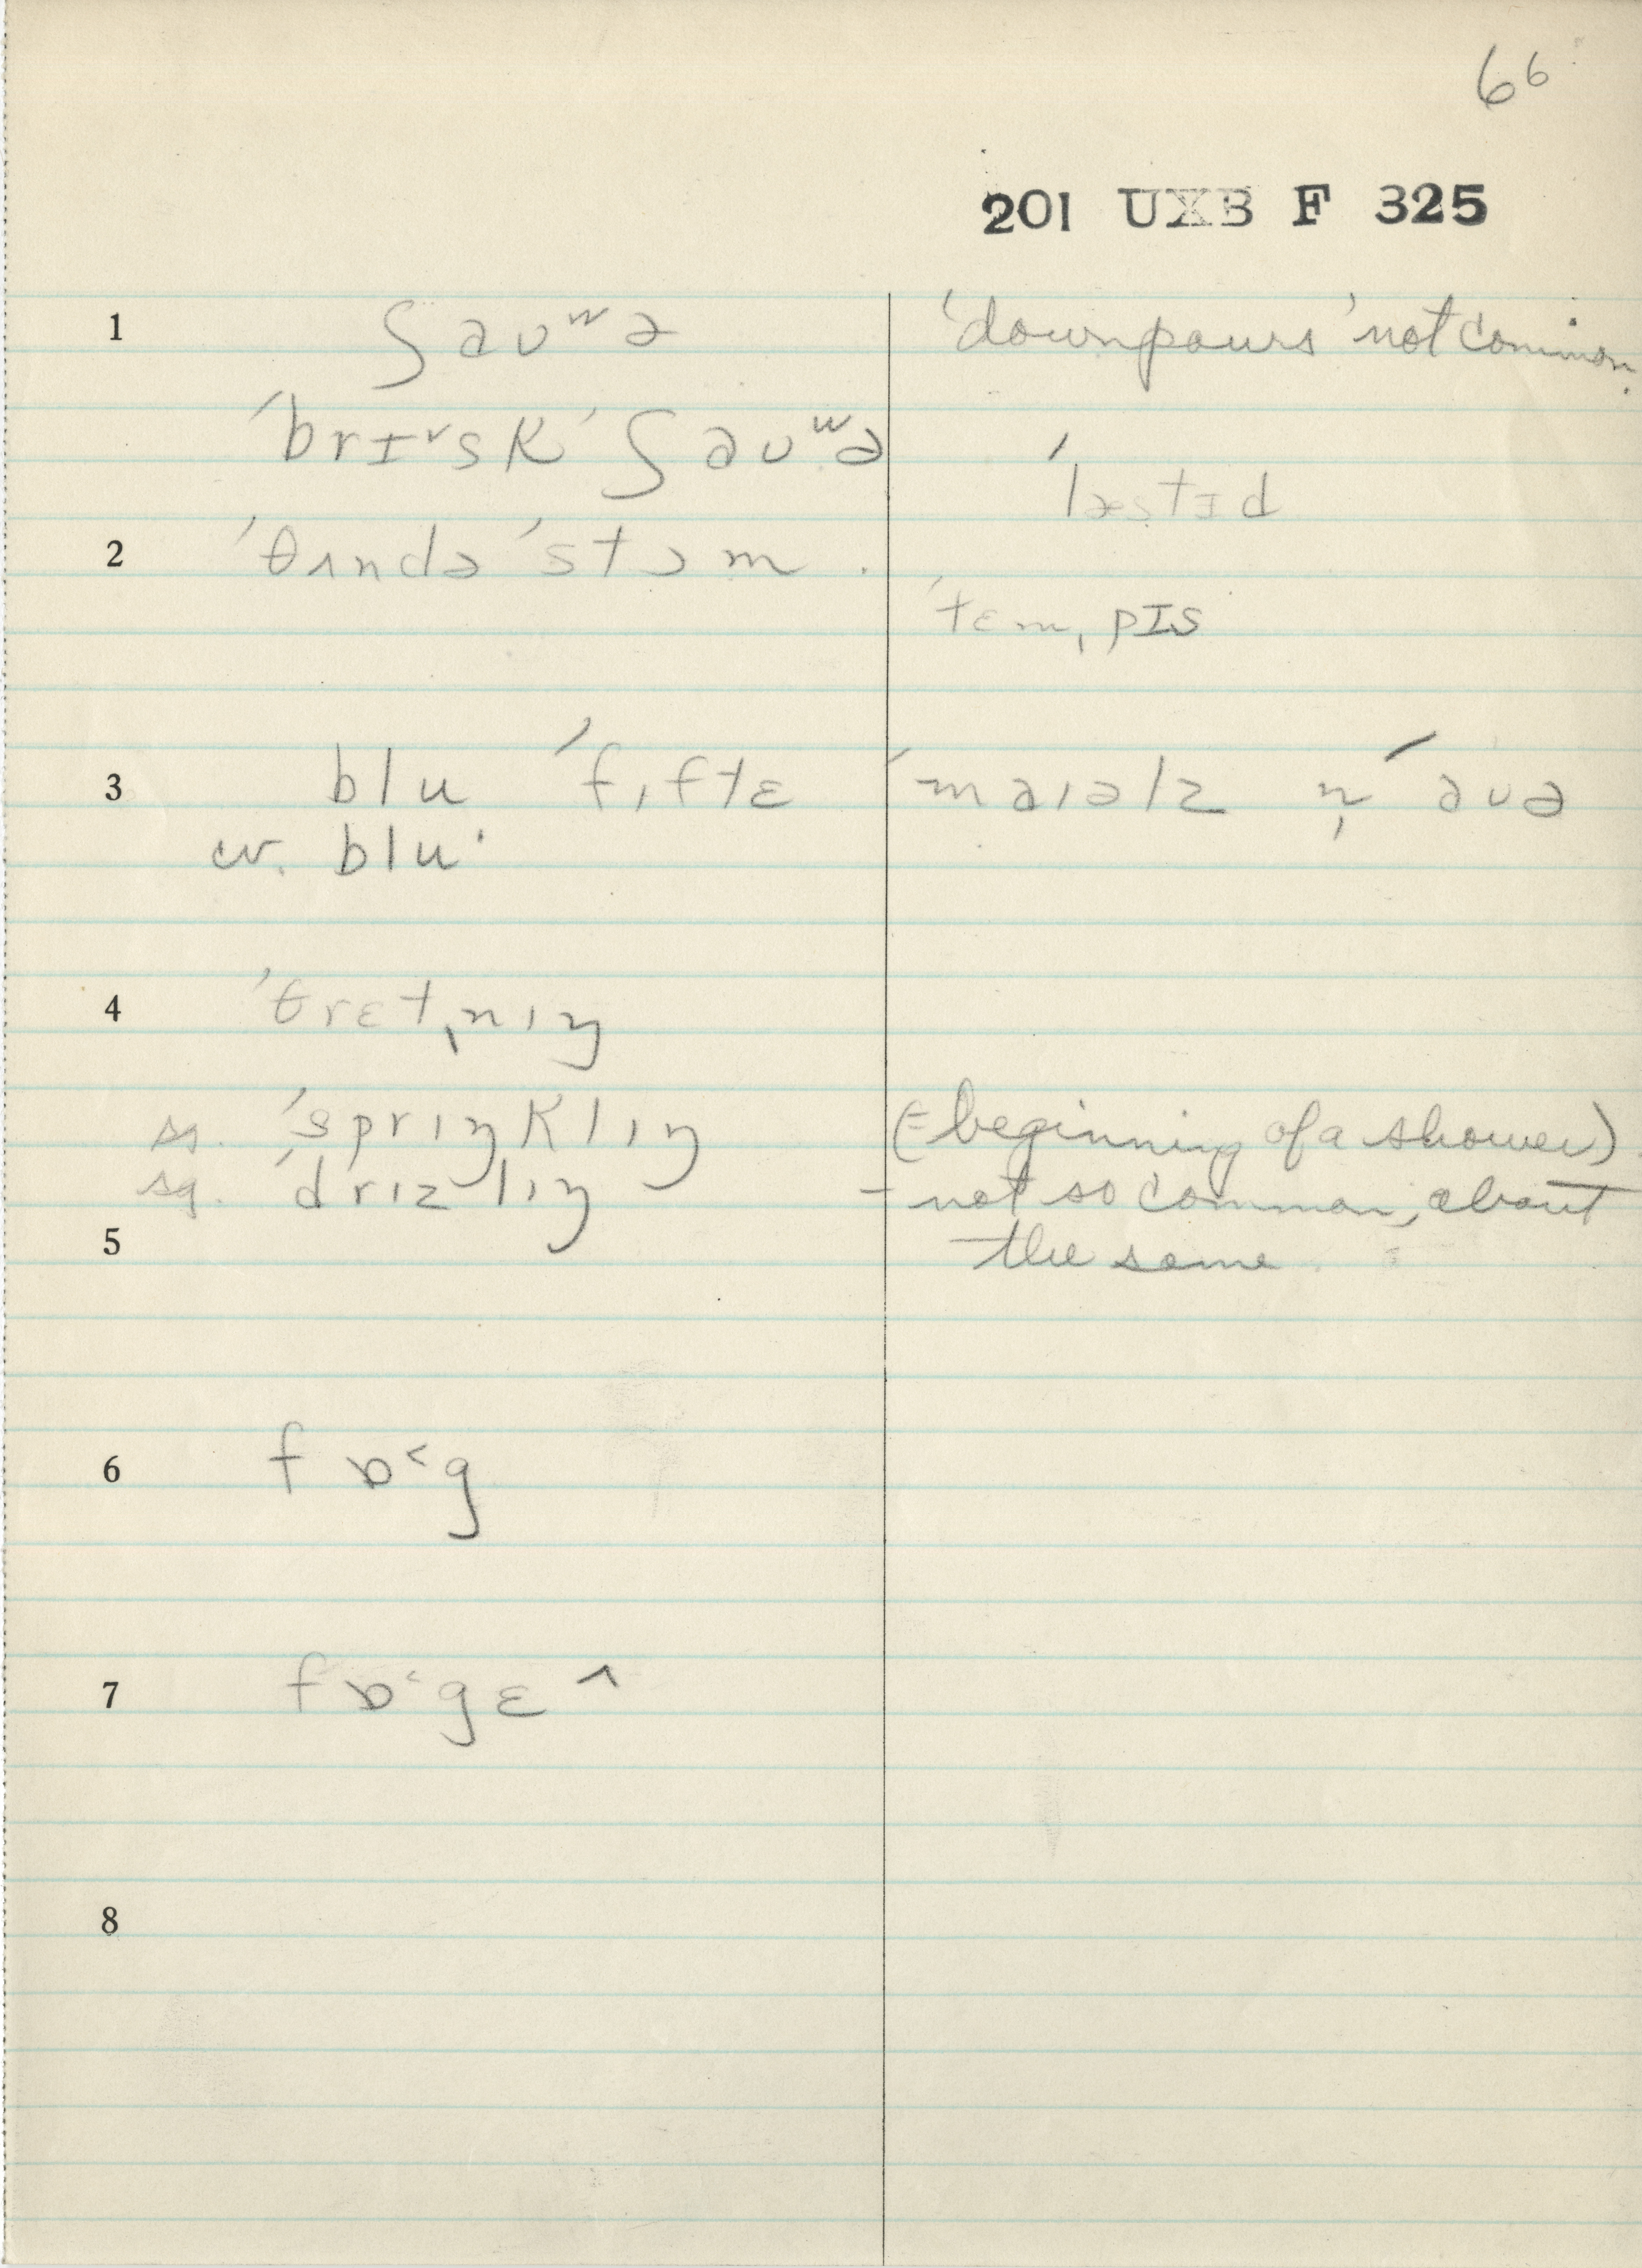 66
201 UXB F 325
1 ʃauʷə 'downpours' not common.
ˈbrɪ˅sk ˈʃauʷə
ˈlæstɪd
2 ˈθʌndə ˈstɔm .
ˈtɛm̩pɪs
3 blu ˈfɪftɛ ˈmaɪəlz n̩ ˈauə
cr. blu·
4 ˈθrɛt̩nɪŋ
s. ˈsprɪŋklɪŋ (= beginning of a shower)
sg. ˈdrɪzlɪŋ - not so common, about
5 the same.
6 fɒ˂g
7 fɒ˂gɛ^
8